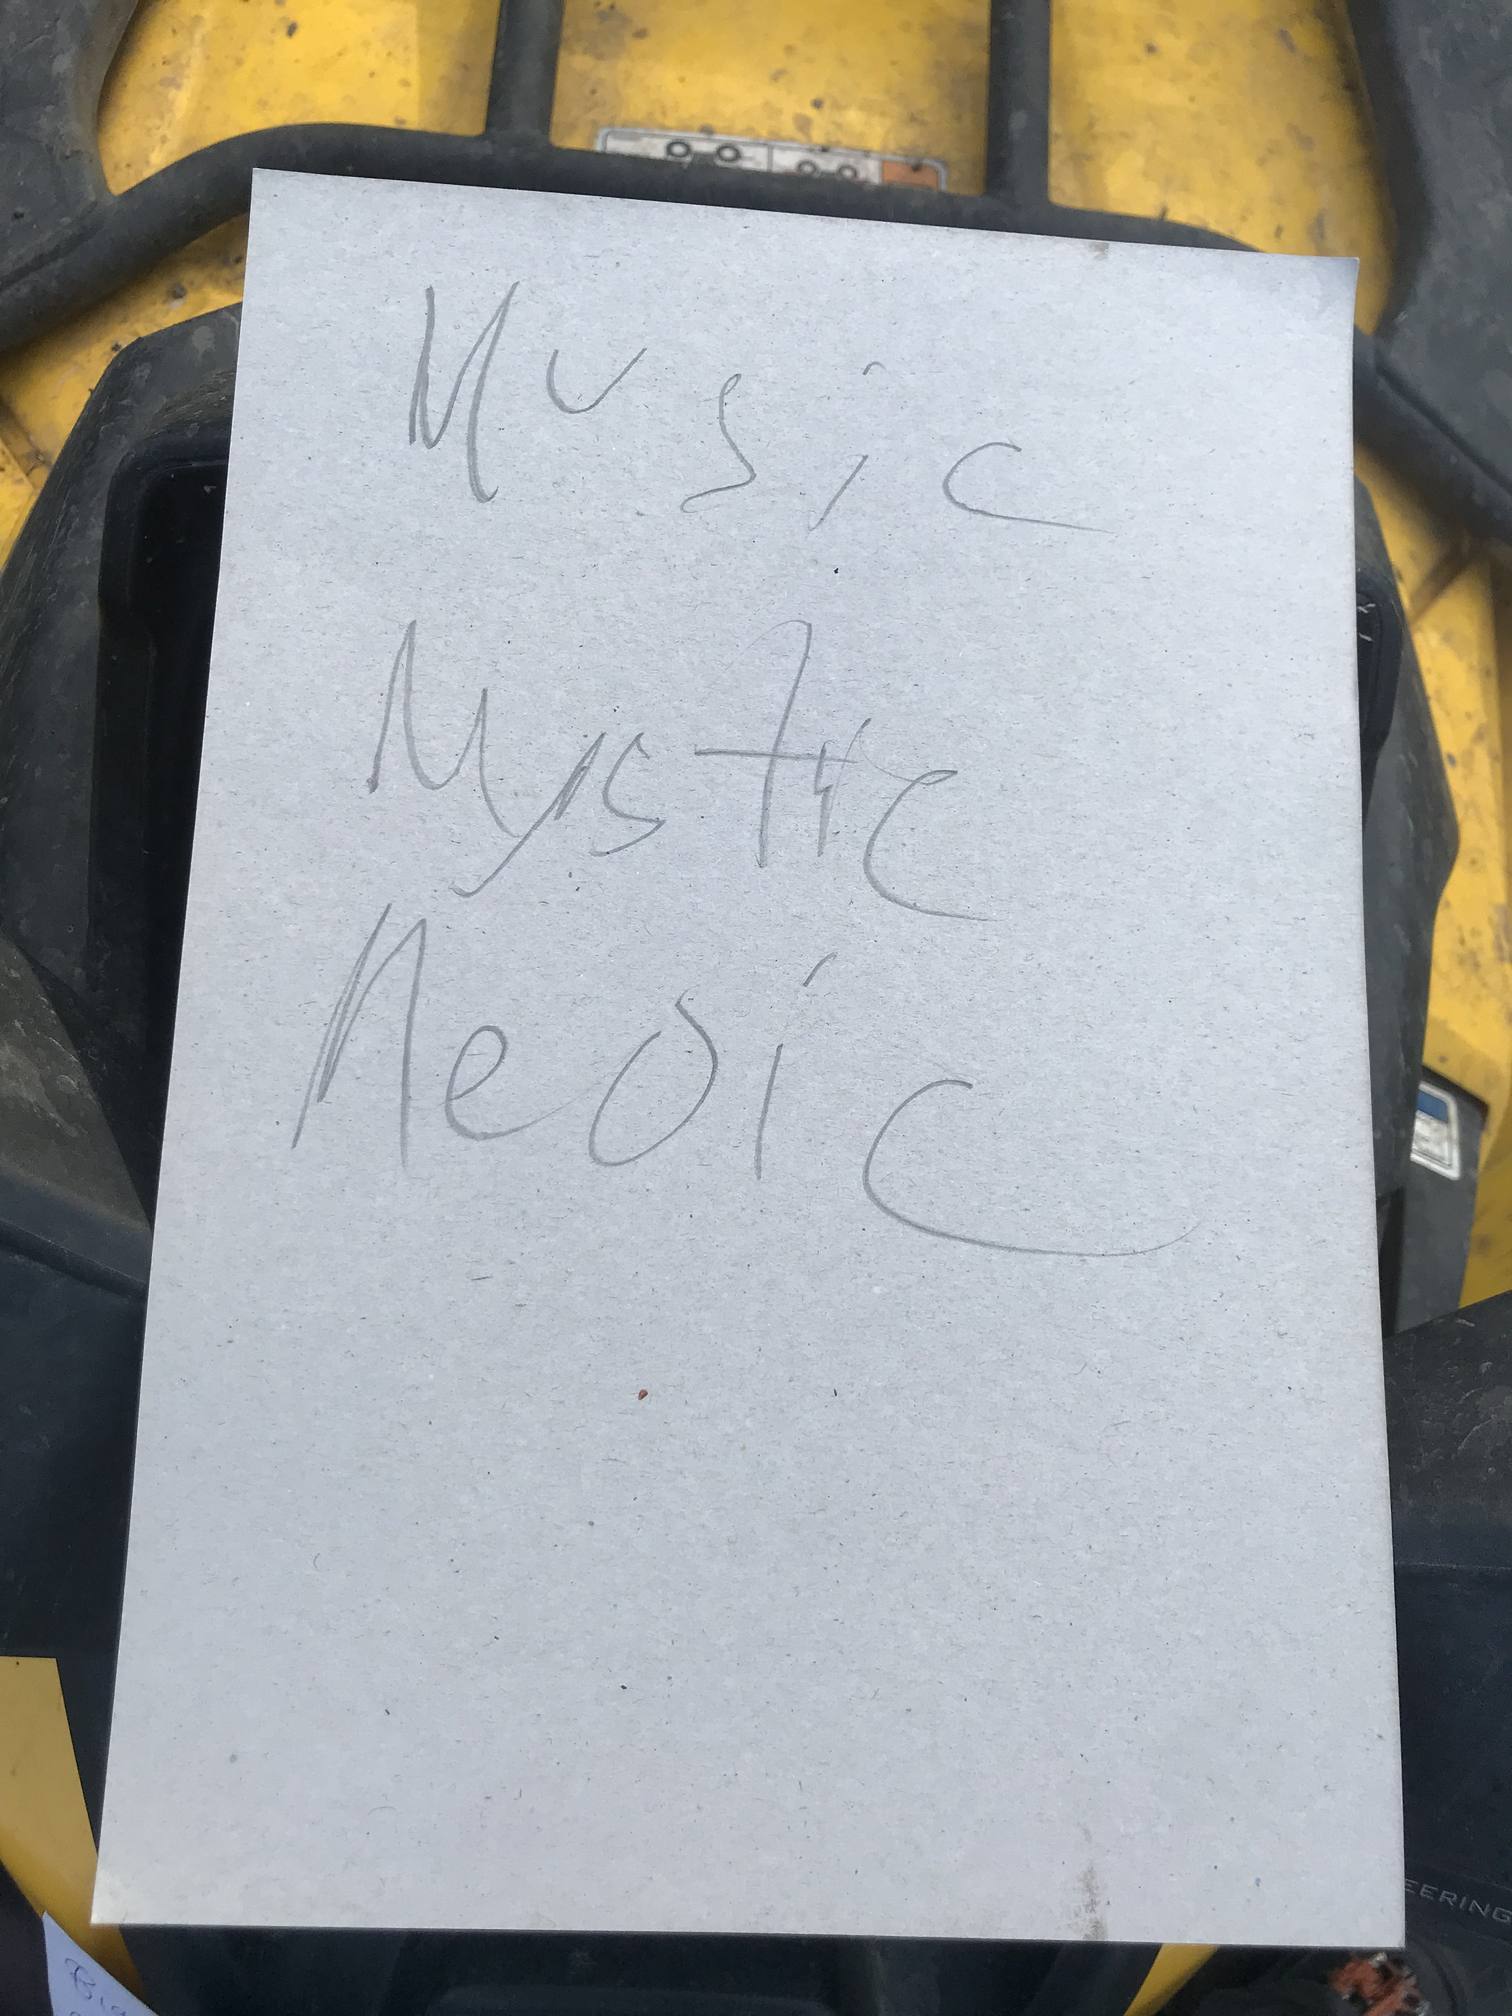 Music
Mystic
Medic
EERING